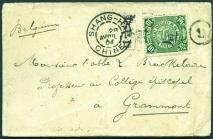 Belgium
SHANG-HAI
28
AVRIL
CHINE
1
Monsieur l'abbé Brackelaire
Professeur au Collège épiscopal
à
Grammont